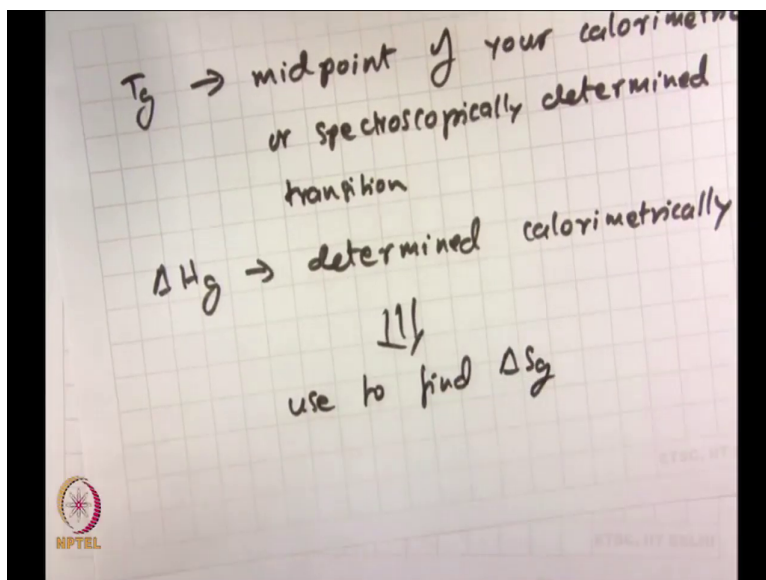 Tg → midpoint of your
or spectroscopically determined
transition
ΔHg → determined calorimetrically
use to find ΔSg
NPTEL